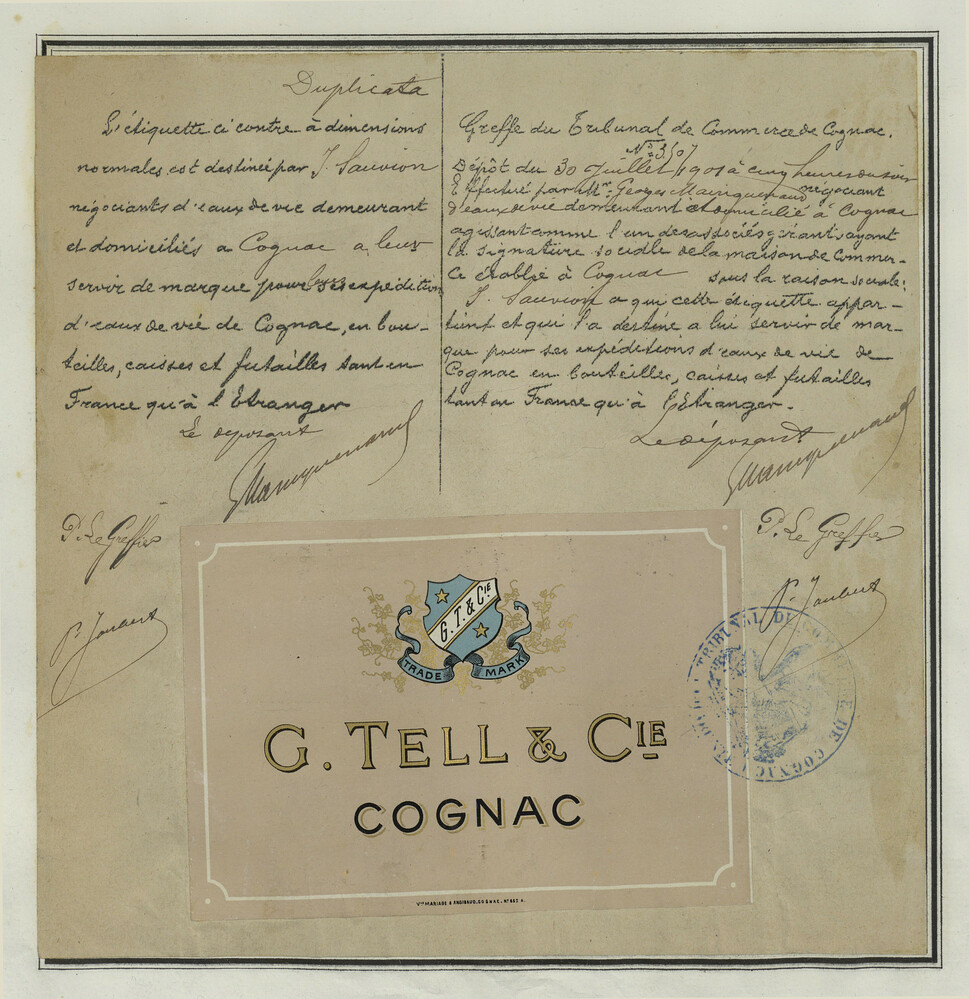 Duplicata
L'étiquette ci contre à dimensions
normales est destinée par J. Sauvion
négociants d'eaux de vie demeurant
et domiciliés a Cognac a leur
servir de marque pour expédition
d'eaux de vie de Cognac, en bou-
teilles, caisses et futailles tant en
France qu'à l'Etranger
Le déposant
P. Le Greffier
P. Joubert
Greffe du Tribunal de Commerce de Cognac.
Dépôt du 30 Juillet 1901 à cinq heures du soir
Effectué par Mr. Georges négociant
d'eaux de vie demeurant et domicilié à Cognac
agissant comme l'un des associés gérants, ayant
la signature sociale de la maison de Commer-
ce établie à Cognac sous la raison sociale:
J. Sauvion a qui cette étiquette appar-
tient et qui l'a destine a lui servir de mar-
que pour ses expéditions d'eaux de vie de
Cognac en bouteilles, caisses et futailles
tant en France qu'à l'Etranger.
Le déposant
P. Le Greffier
P. Joubert
G. T. & CIE
TRADE MARK
G. TELL & CIE
COGNAC
Vve MARIAGE & ANDIBAUD, COGNAC. No 862 A.
TRIBUNAL DE COMMERCE DE COGNAC